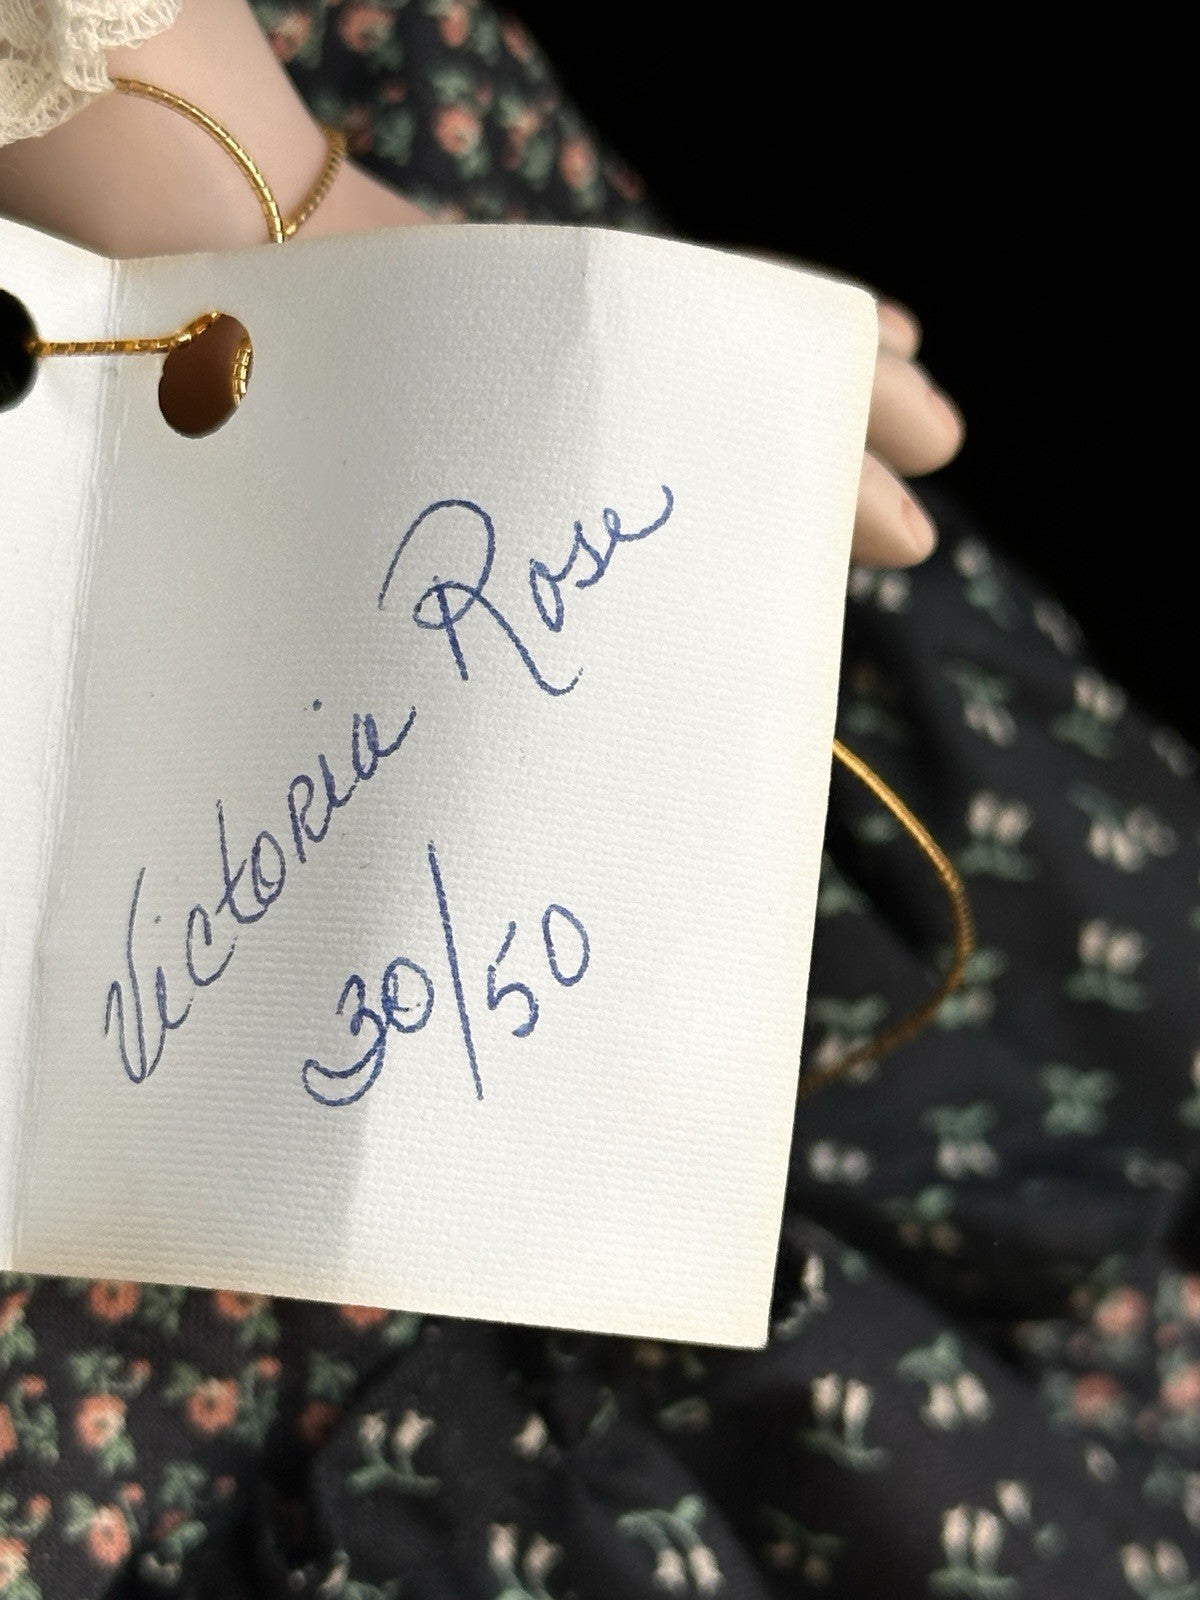 Victoria Rose
30/50